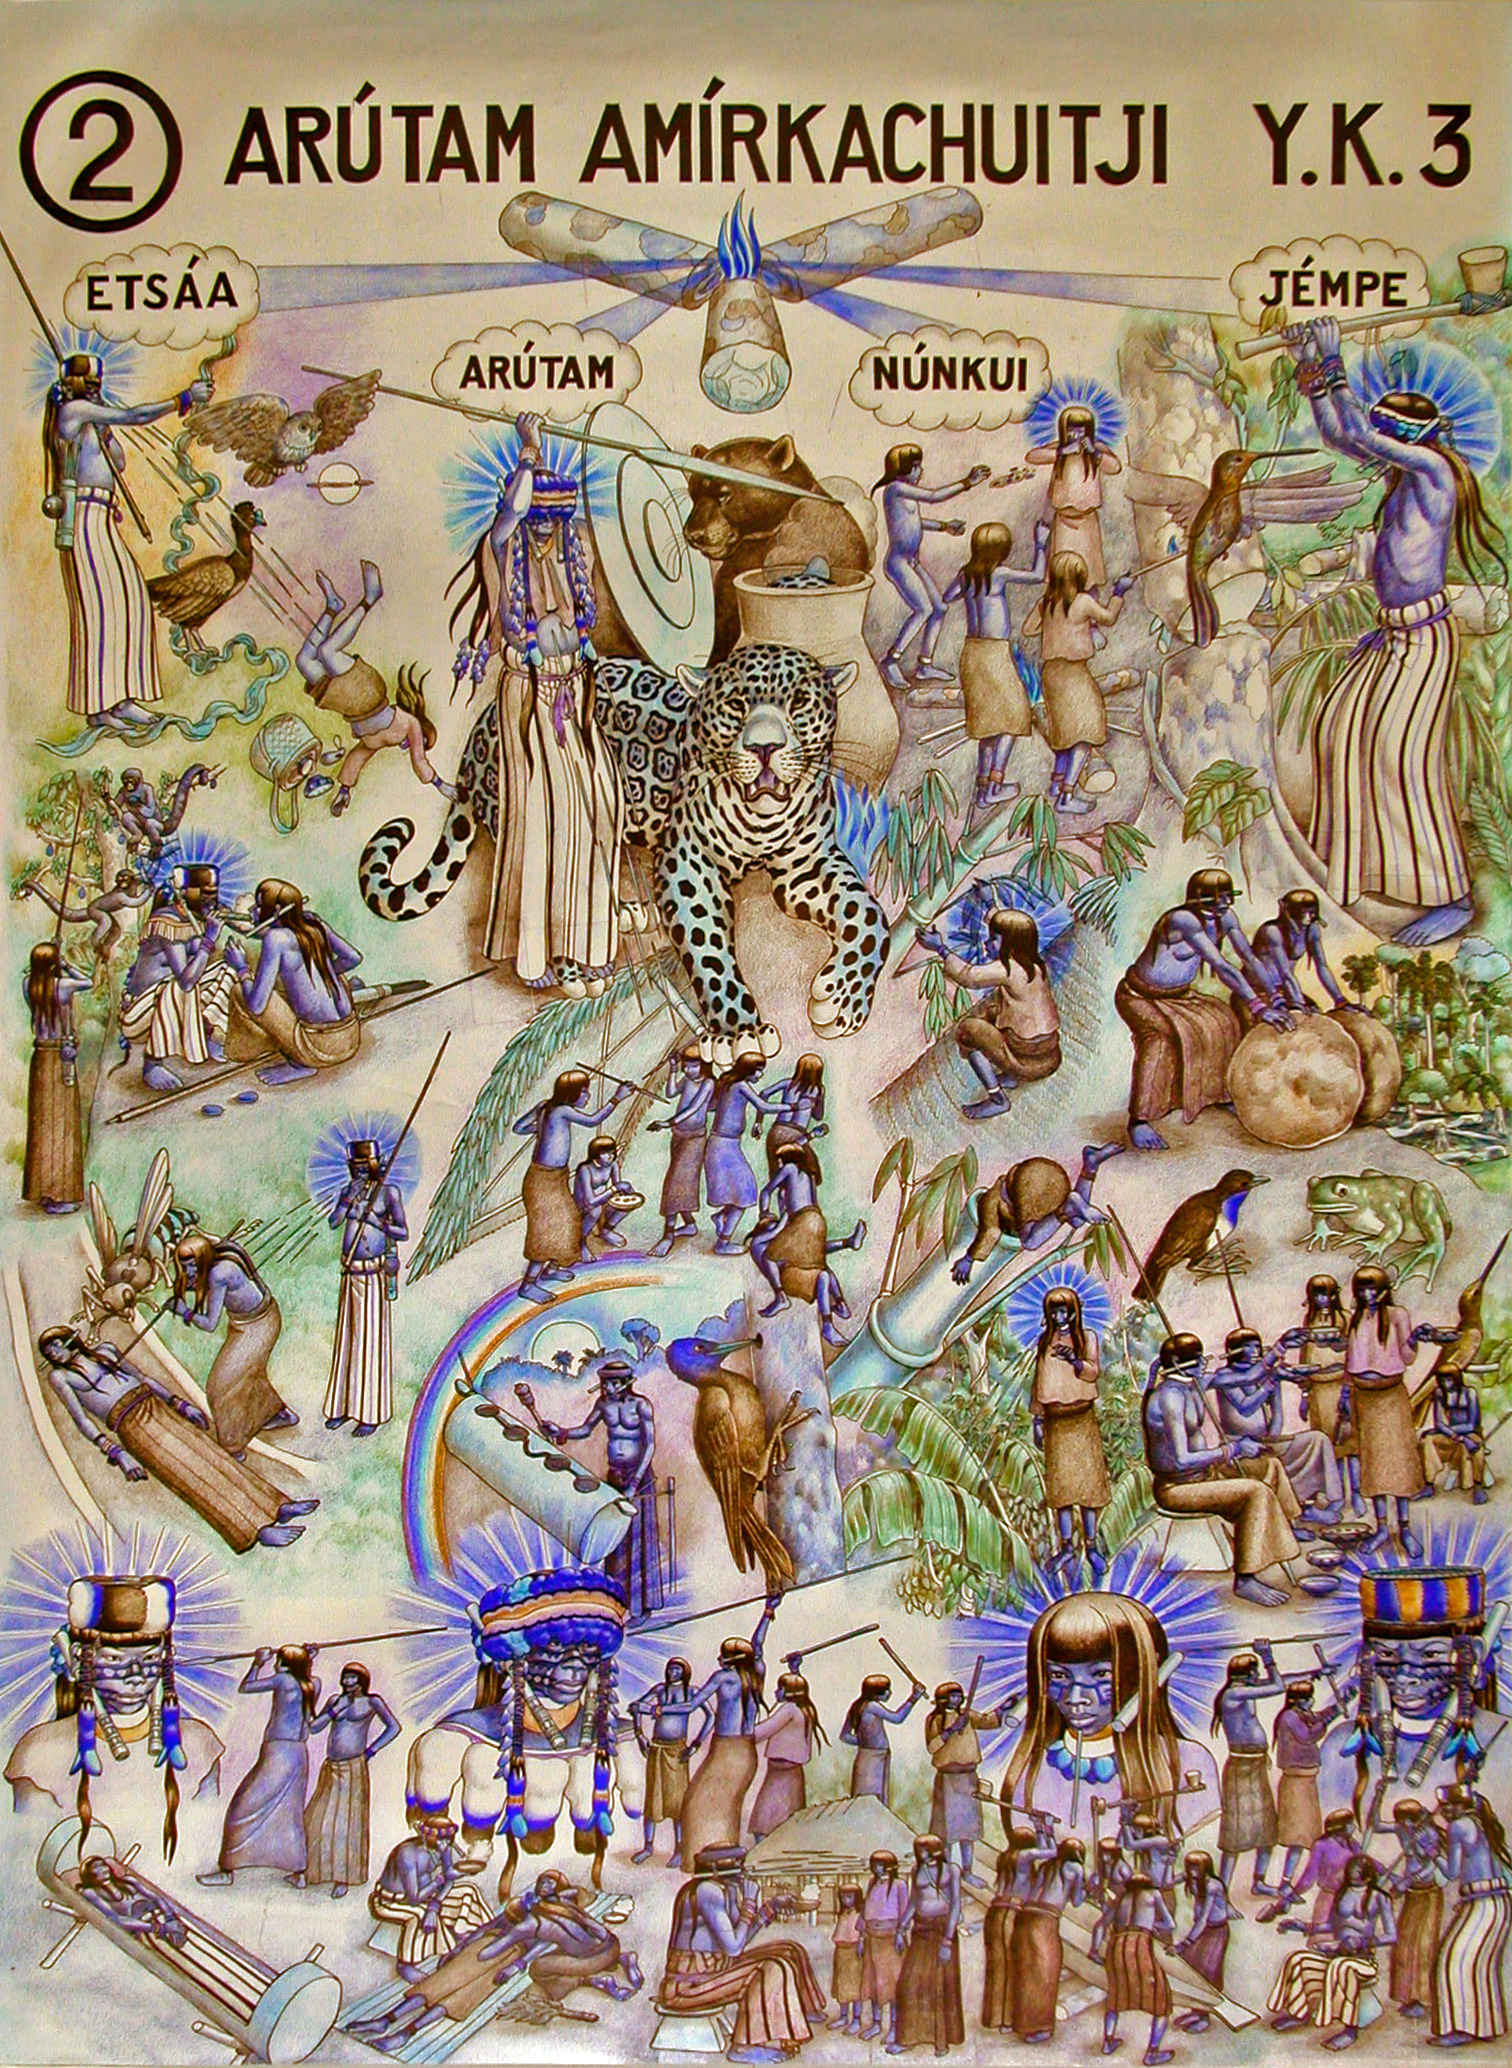 2 ARÚTAM AMÍRKACHUITJI Y.K.3
ETSÁA
JÉMPE
ARÚTAM
NÚNKUI